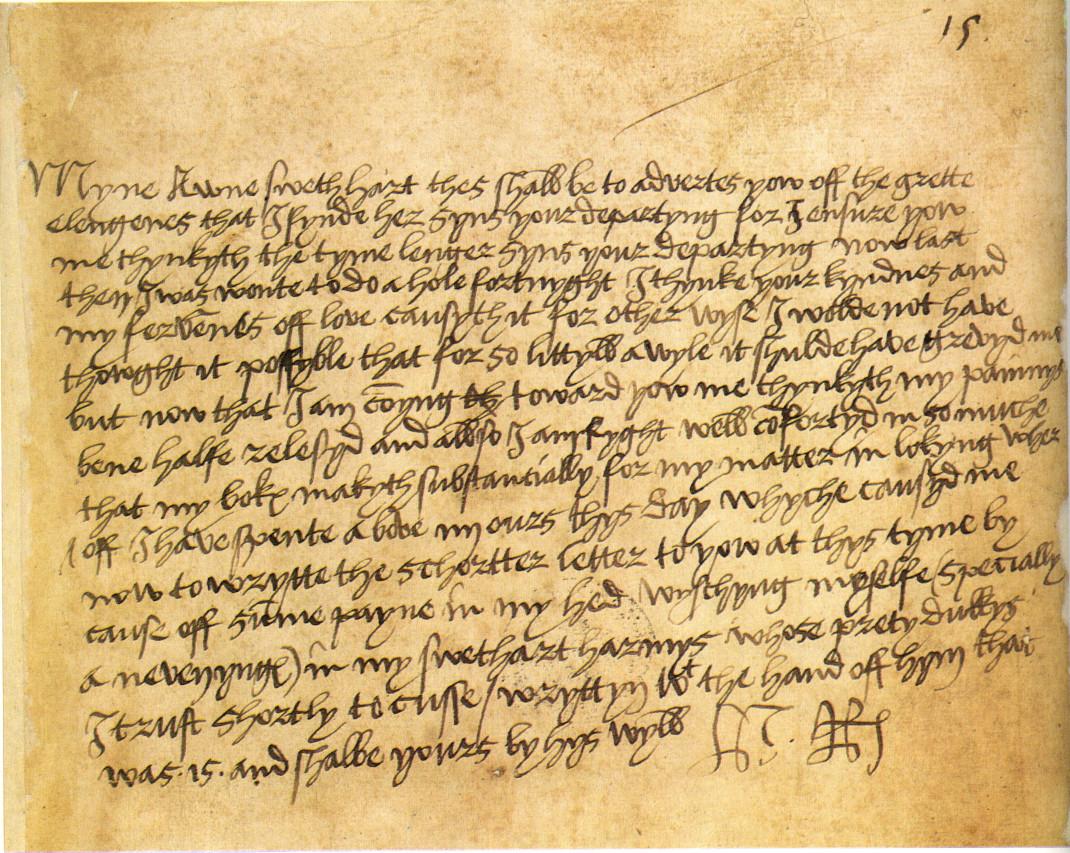 15.
Myne Awne swethhart thes shall be to advertes yow off the grette
elengenes that I fynde her syns your departyng for I ensure yow
me thynkyth the tyme lenger syns your departyng now last
then I was wonte to do a hole fortnyght I thynke your kyndnes and
my fervēnes off love causyth it for other wyse I wolde not have
thowght it possyble that for so littyll a wyle it shulde have grevyd me
but now that I am cōyng toward yow me thynkyth my painnys
bene halfe relesyd and allso I am ryght well cōfortyd in so muche
that my boke makyth substancially for my matter in lokyng wher
off I have spente above iiij ours thys day whyche causyd me
now to wrytte the schortter letter to yow at thys tyme by
cause off sūme payne in my hed wyschyng myselfe (specially
a nevenynge) in my swethart harmys whose prety dukkys
I trust shortly to cusse / wryttyn wt the hand off hym that
was. is. and shalbe yours by hys wyll